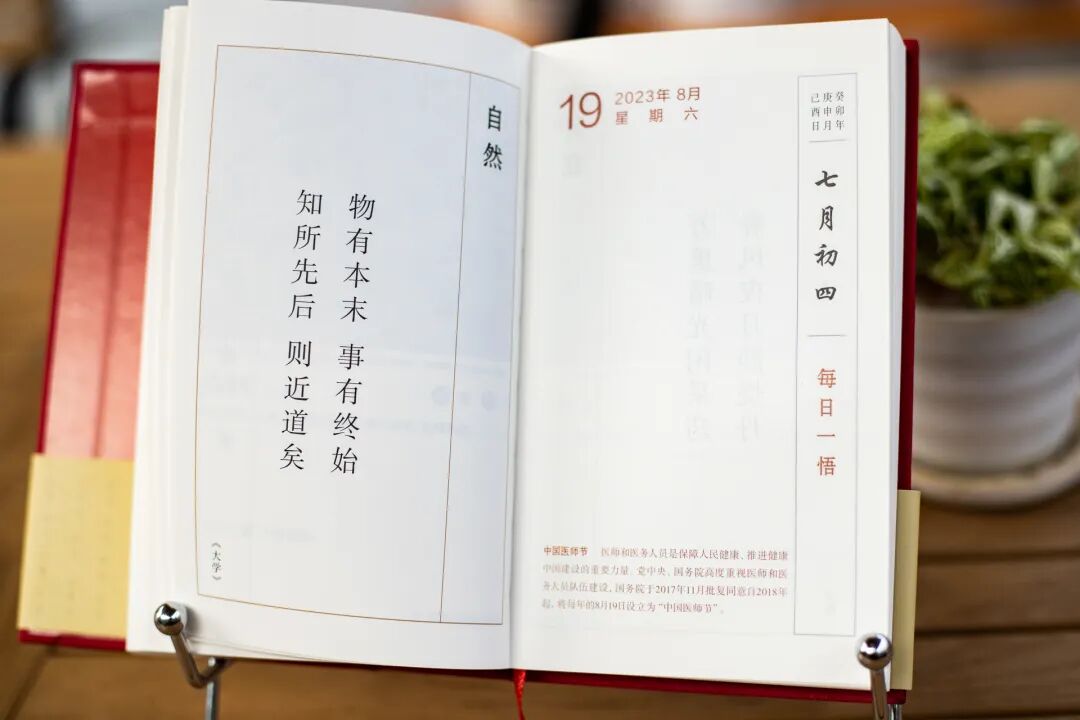 自然
物有本末 事有终始
知所先后 则近道矣
《大学》
19
2023年 8月
星期六
癸卯年
庚申月
己酉日
七月初四
每日一悟
中国医师节 医师和医务人员是保障人民健康、推进健康
中国建设的重要力量。党中央、国务院高度重视医师和医
务人员队伍建设，国务院于2017年11月批复同意自2018年
起，将每年的8月19日设立为“中国医师节”。